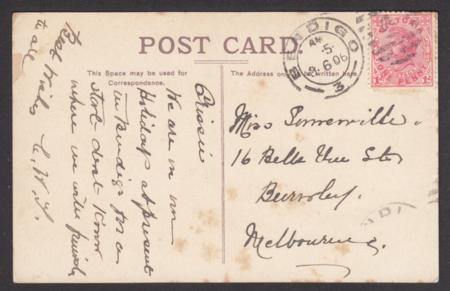 POST CARD.
This Space may be used for
Correspondence.
The Address only to be written here.
BENDIGO
AM
5
6 06
3
VICTORIA
ONE PENNY
Prissie
We are on our
Holidays at present
in Bendigo for a
start dont know
where we will finish
Best wishes
to all
Miss Somerville.
16 Belle Vue St
Burnley.
Melbourne